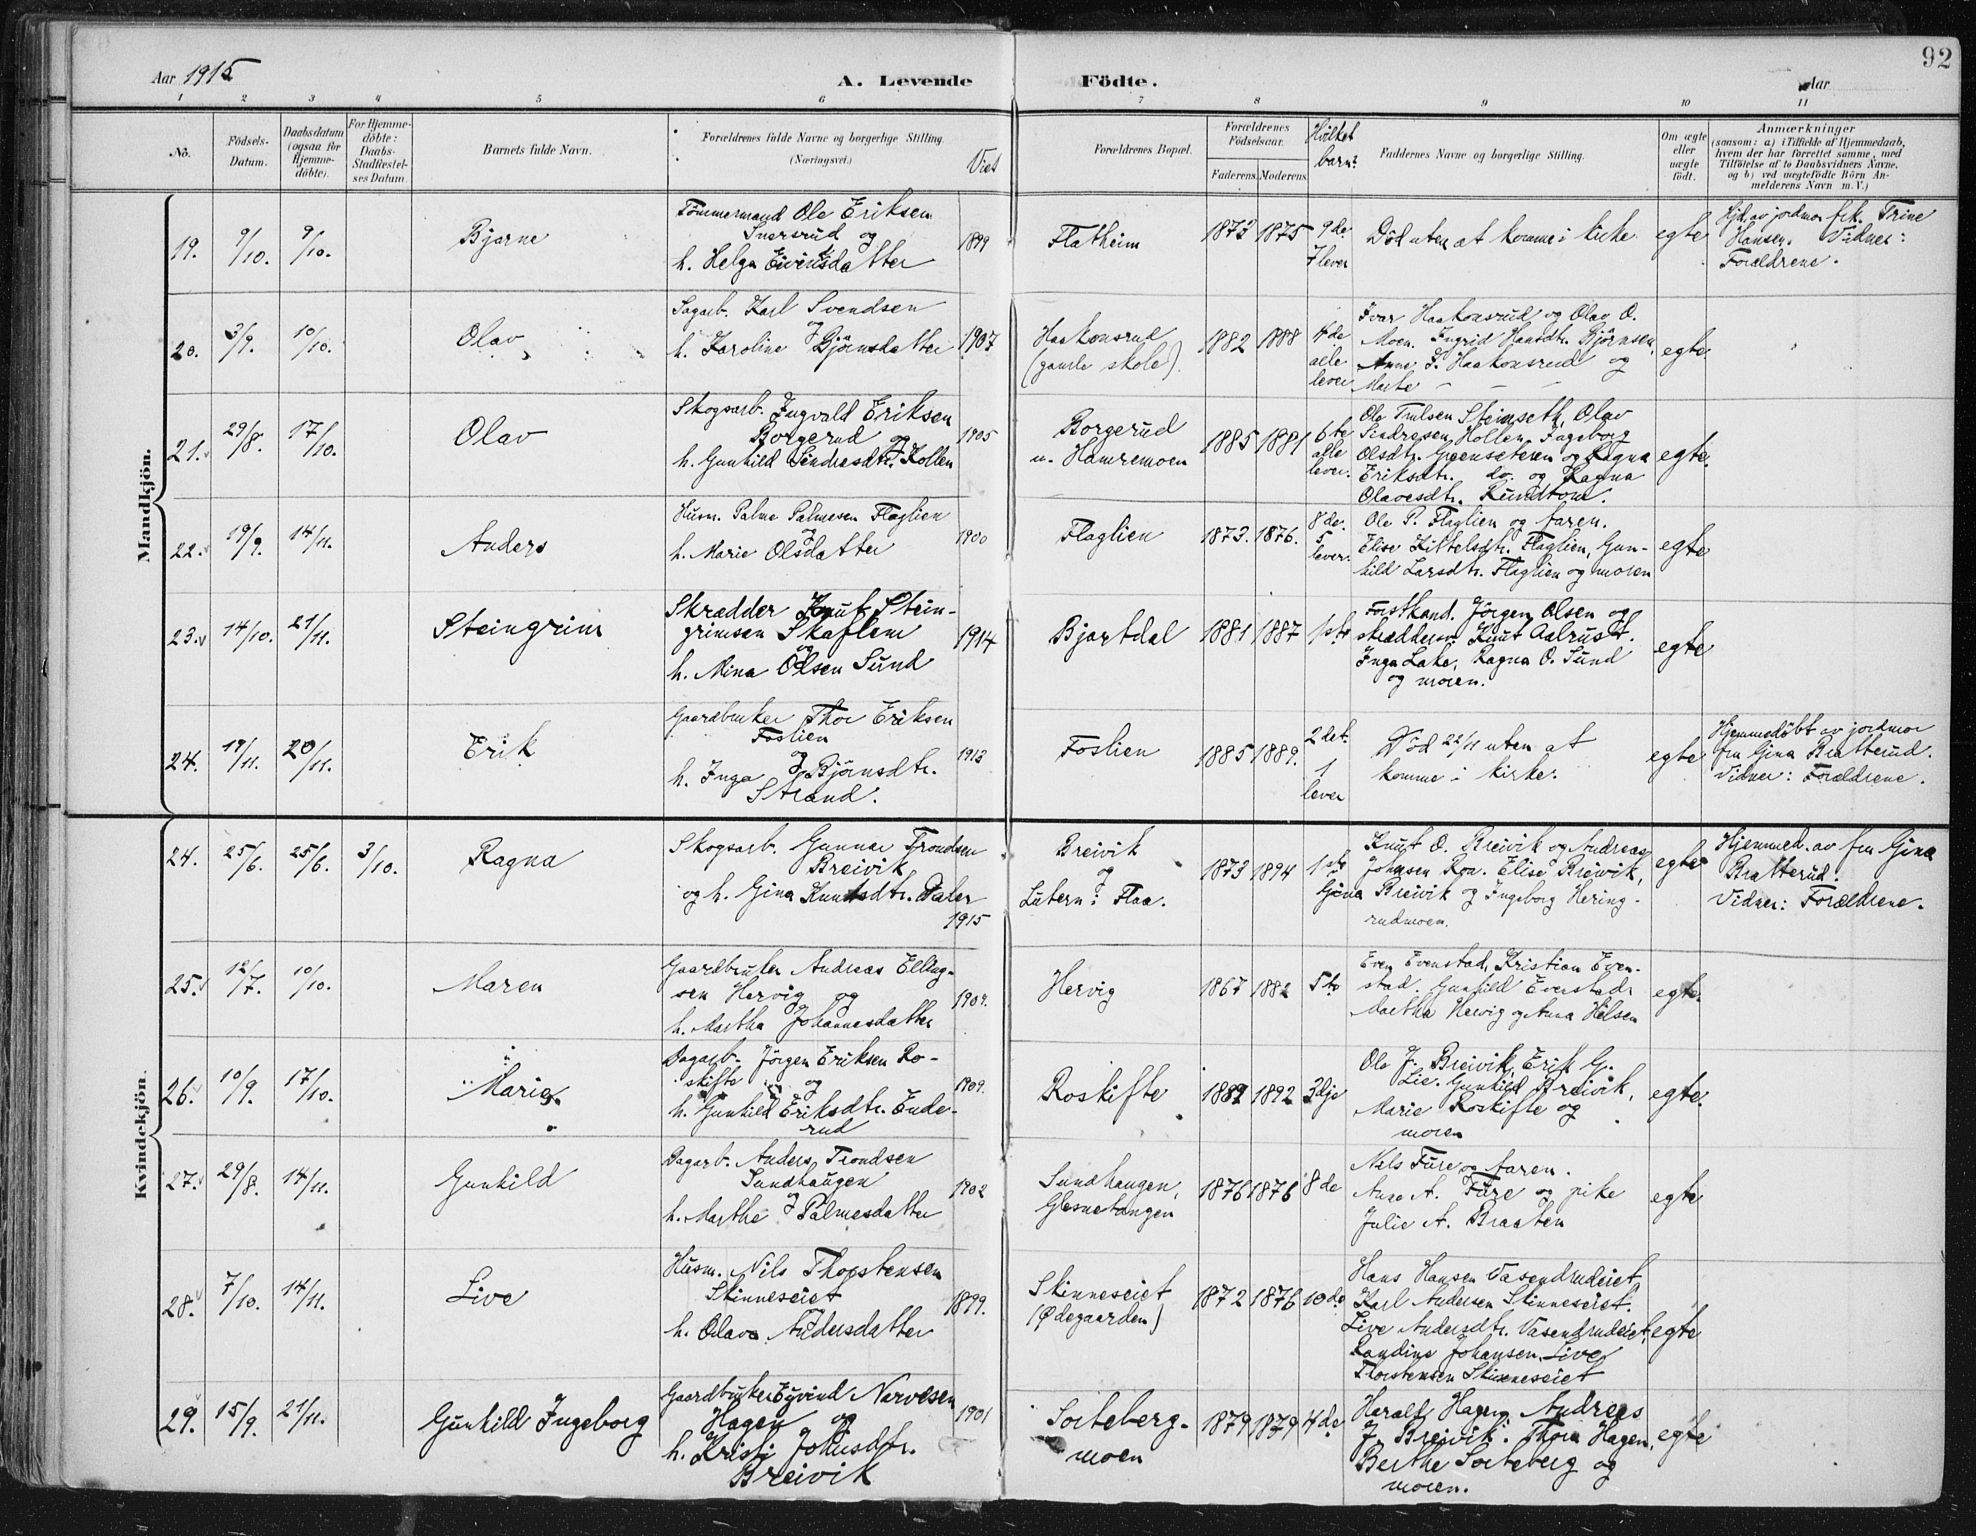 92
Aar 1915 A. Levende Födte. Aar
1 2 3 4 5 6 7 8 9 10 11
No.
Födsels-
Datum.
Daabsdatum
(ogsaa for
Hjemme-
döbte).
For Hjemme-
döbte:
Daabs-
Stadfæstel-
ses Datum.
Barnets fulde Navn.
Forældrenes fulde Navne og borgerlige Stilling.
(Næringsvei.)
Viet
Forældrenes Bopæl.
Forældrenes
Födselsaar.
Faderens. Moderens.
Hvilket
barn?
Faddernes Navne og borgerlige Stilling.
Om ægte
eller
uægte
födt.
Anmærkninger
(saasom: a) i Tilfælde af Hjemmedaab,
hvem der har forrettet samme, med
Tilföielse af to Daabsvidners Navne,
og b) ved uægtefödte Börn An-
melderens Navn m. V.)
Mandkjön.
19. 9/10. 9/10. Bjarne
Tömmermand Ole Eriksen
Snersrud og
h. Helga Eivindsdatter
1899 Flatheim 1873 1875 9de
7 lever
Död uten at komme i kirke. egte
Hjd. av jordmor frk. Trine
Hansen. Vidner:
Forældrene.
20. 3/9. 10/10. Olav
Sagarb. Karl Svendsen
og
h. Karoline Björnsdatter
1907 Haakonsrud
(gamle skole).
1882 1888 4de
alle
lever
Ivar Haakonsrud og Olav O.
Moen. Ingrid Hansdtr. Björnsen,
Anne F. Haakonsrud og
Marte — — —
egte
21. 29/8. 17/10. Olav
Skogsarb. Ingvald Eriksen
Borgerud og
h. Gunhild Sindresdtr. Kollen
1905 Borgerud
u. Hamremoen
1885 1881 6te
alle
lever.
Ole Trulsen Steinseth, Olav
Sindresen Hollen, Ingeborg
Olsdtr. Grönseteren og Ragna
Eriksdtr. do. og Ragna
Olavesdtr. Rundtom.
egte.
22. 19/9. 14/11. Anders
Husm. Palme Palmesen Flaglien
og
h. Marie Olsdatter
1900 Flaglien 1873. 1876. 8de.
5
lever.
Ole P. Flaglien og faren.
Elise Kittelsdtr. Flaglien, Gun-
hild Larsdtr. Flaglien og moren
egte
23. 14/10. 21/11. Steingrim
Skrædder Knut Stein-
grimsen Skaflem
og
h. Mina Olsen Sund
1914 Bjartdal 1881 1887 1ste
Forstkand. Jörgen Olsen og
skrædderm. Knut Aalrust.
Inga Lake, Ragna O. Sund
og moren.
egte
24. 19/11. 20/11. Erik
Gaardbruker Thor Eriksen
Foslien
og
h. Inga Björnsdtr.
Strand.
1913 Foslien 1885 1889. 2det.
1
lever
Död 22/11 uten at
komme i kirke.
egte
Hjemmedöbt av jordmor
fru Gina Bratterud.
Vidner: Forældrene.
Kvindekjön.
24. 25/6. 25/6. 3/10. Ragna
Skogsarb. Gunnar Trondsen
Breivik
og h. Gina Knutsdtr. Daler
1915
Breivik
og
Lutern i Flaa.
1873 1894 1ste
Knut O. Breivik og Andreas
Johnsen Ron. Elise Breivik,
Göna Breivik og Ingeborg Hering-
rudmoen.
egte
Hjemmed. av fru Gina
Bratterud.
Vidner: Forældrene.
25. 12/7. 10/10. Maren
Gaardbruker Andreas Elling-
sen Hervig og
h. Martha Johannesdatter
1904. Hervig 1867 1882 5te
Even Evenstad, Kristian Even-
stad. Gunhild Evenstad,
Martha Hervig og Anna Hilsen
egte
26. 10/9. 17/10. Marie
Dagarb. Jörgen Eriksen Ro-
skifte og
h. Gunhild Eriksdtr. Ende-
rud
1909. Roskifte 1889 1892 3dje
Ole J. Breivik, Erik G.
Lie. Gunhild Breivik,
Marie Roskifte og
moren
egte.
27. 29/8. 14/11. Gunhild
Dagarb. Anders Trondsen
Sundhaugen
og
h. Marthe Palmesdatter
1902 Sundhaugen,
Glesnetangen
1876 1876 8de
Nils Fure og faren.
Anne A. Fure og pike
Julie A. Braaten
egte
28. 7/10. 14/11. Live
Husm. Nils Thorstensen
Skinneseiet
og
h. Olava Andersdatter
1899. Skinneseiet
(Ødegaarden)
1872 1876 10de
Hans Hansen Vasendrudeiet,
Karl Andersen Skinneseiet.
Live Andersdtr. Vasendrudeiet,
Randine Johansen, Live
Thorstensen Skinneseiet
egte
29. 15/9. 21/11. Gunhild Ingeborg
Gaardbruker Eyvind Narvesen
Hagen og
h. Kristi Johnsdtr.
Breivik
1901 Sorteberg-
moen
1879 1879 4de
Harald Hagen, Andreas
J. Breivik. Thora Hagen,
Berthe Sorteberg og
moren.
egte